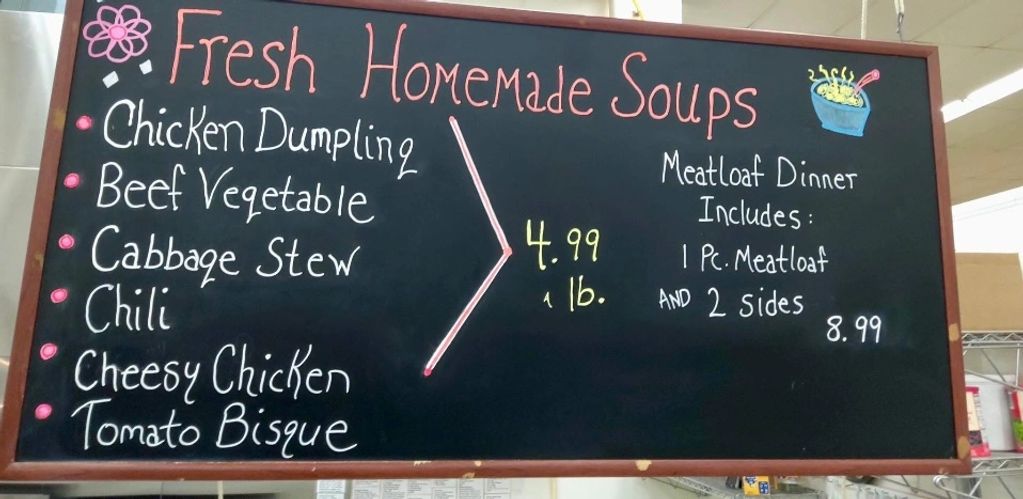 Fresh Homemade Soups
Chicken Dumpling
Beef Vegetable
Cabbage Stew
Chili
Cheesy Chicken
Tomato Bisque
4.99
1 lb.
Meatloaf Dinner
Includes:
1 Pc. Meatloaf
AND 2 sides
8.99